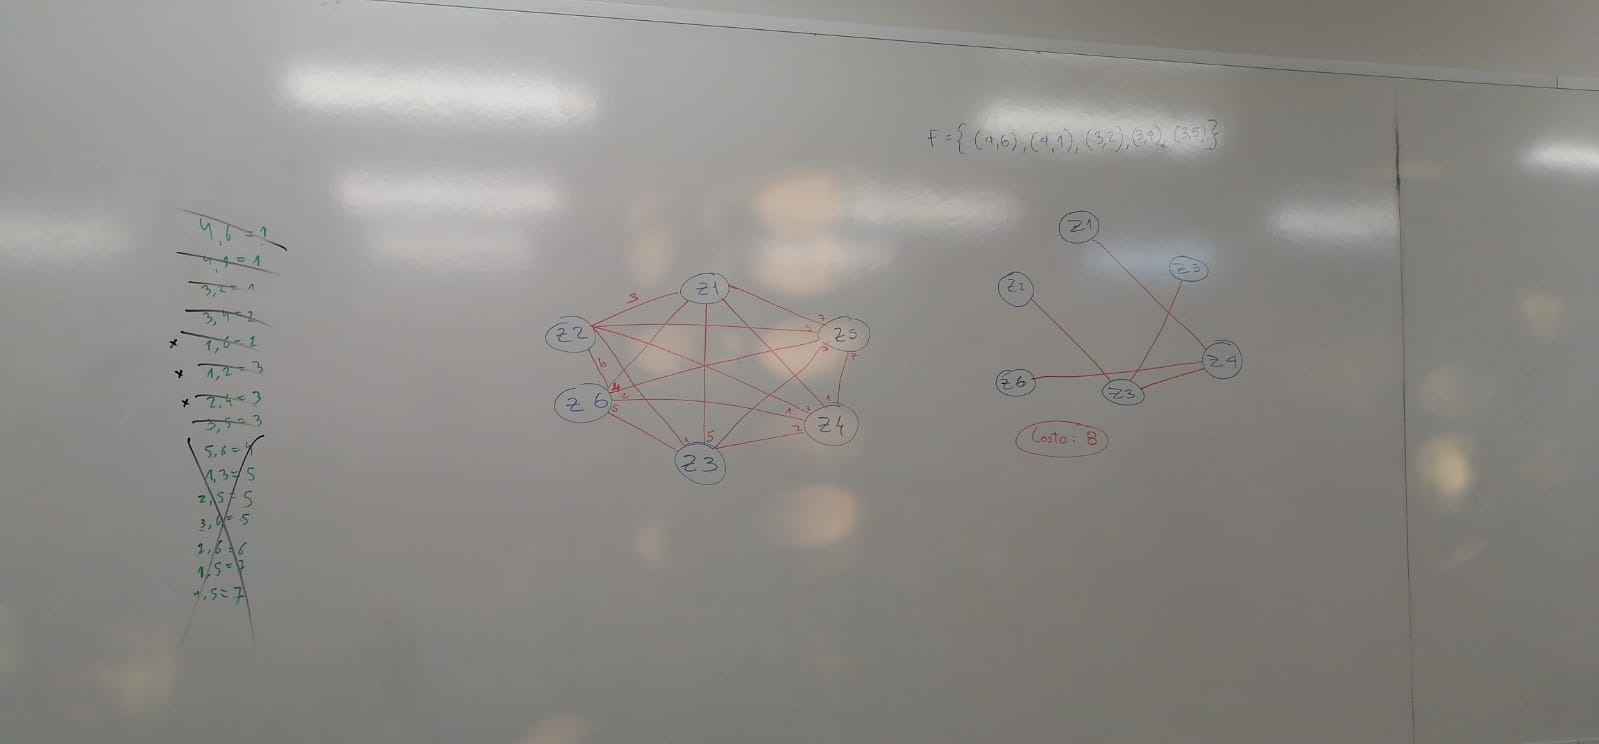 F = { (4,6), (4,1), (3,2), (3,4), (3,5) }
4,6 = 1
4,1 = 1
3,2 = 1
3,4 = 2
x 1,6 = 2
x 1,2 = 3
x 2,4 = 3
3,5 = 3
5,6 = 4
1,3 = 5
2,5 = 5
3,6 = 5
2,6 = 6
1,5 = 7
4,5 = 7
Z1
3
7
Z2
5
Z5
3
7
6
4
2
Z6
5
1
3
1
2
Z4
1
5
Z3
Z1
Z5
Z2
Z4
Z6
Z3
Costo: 8